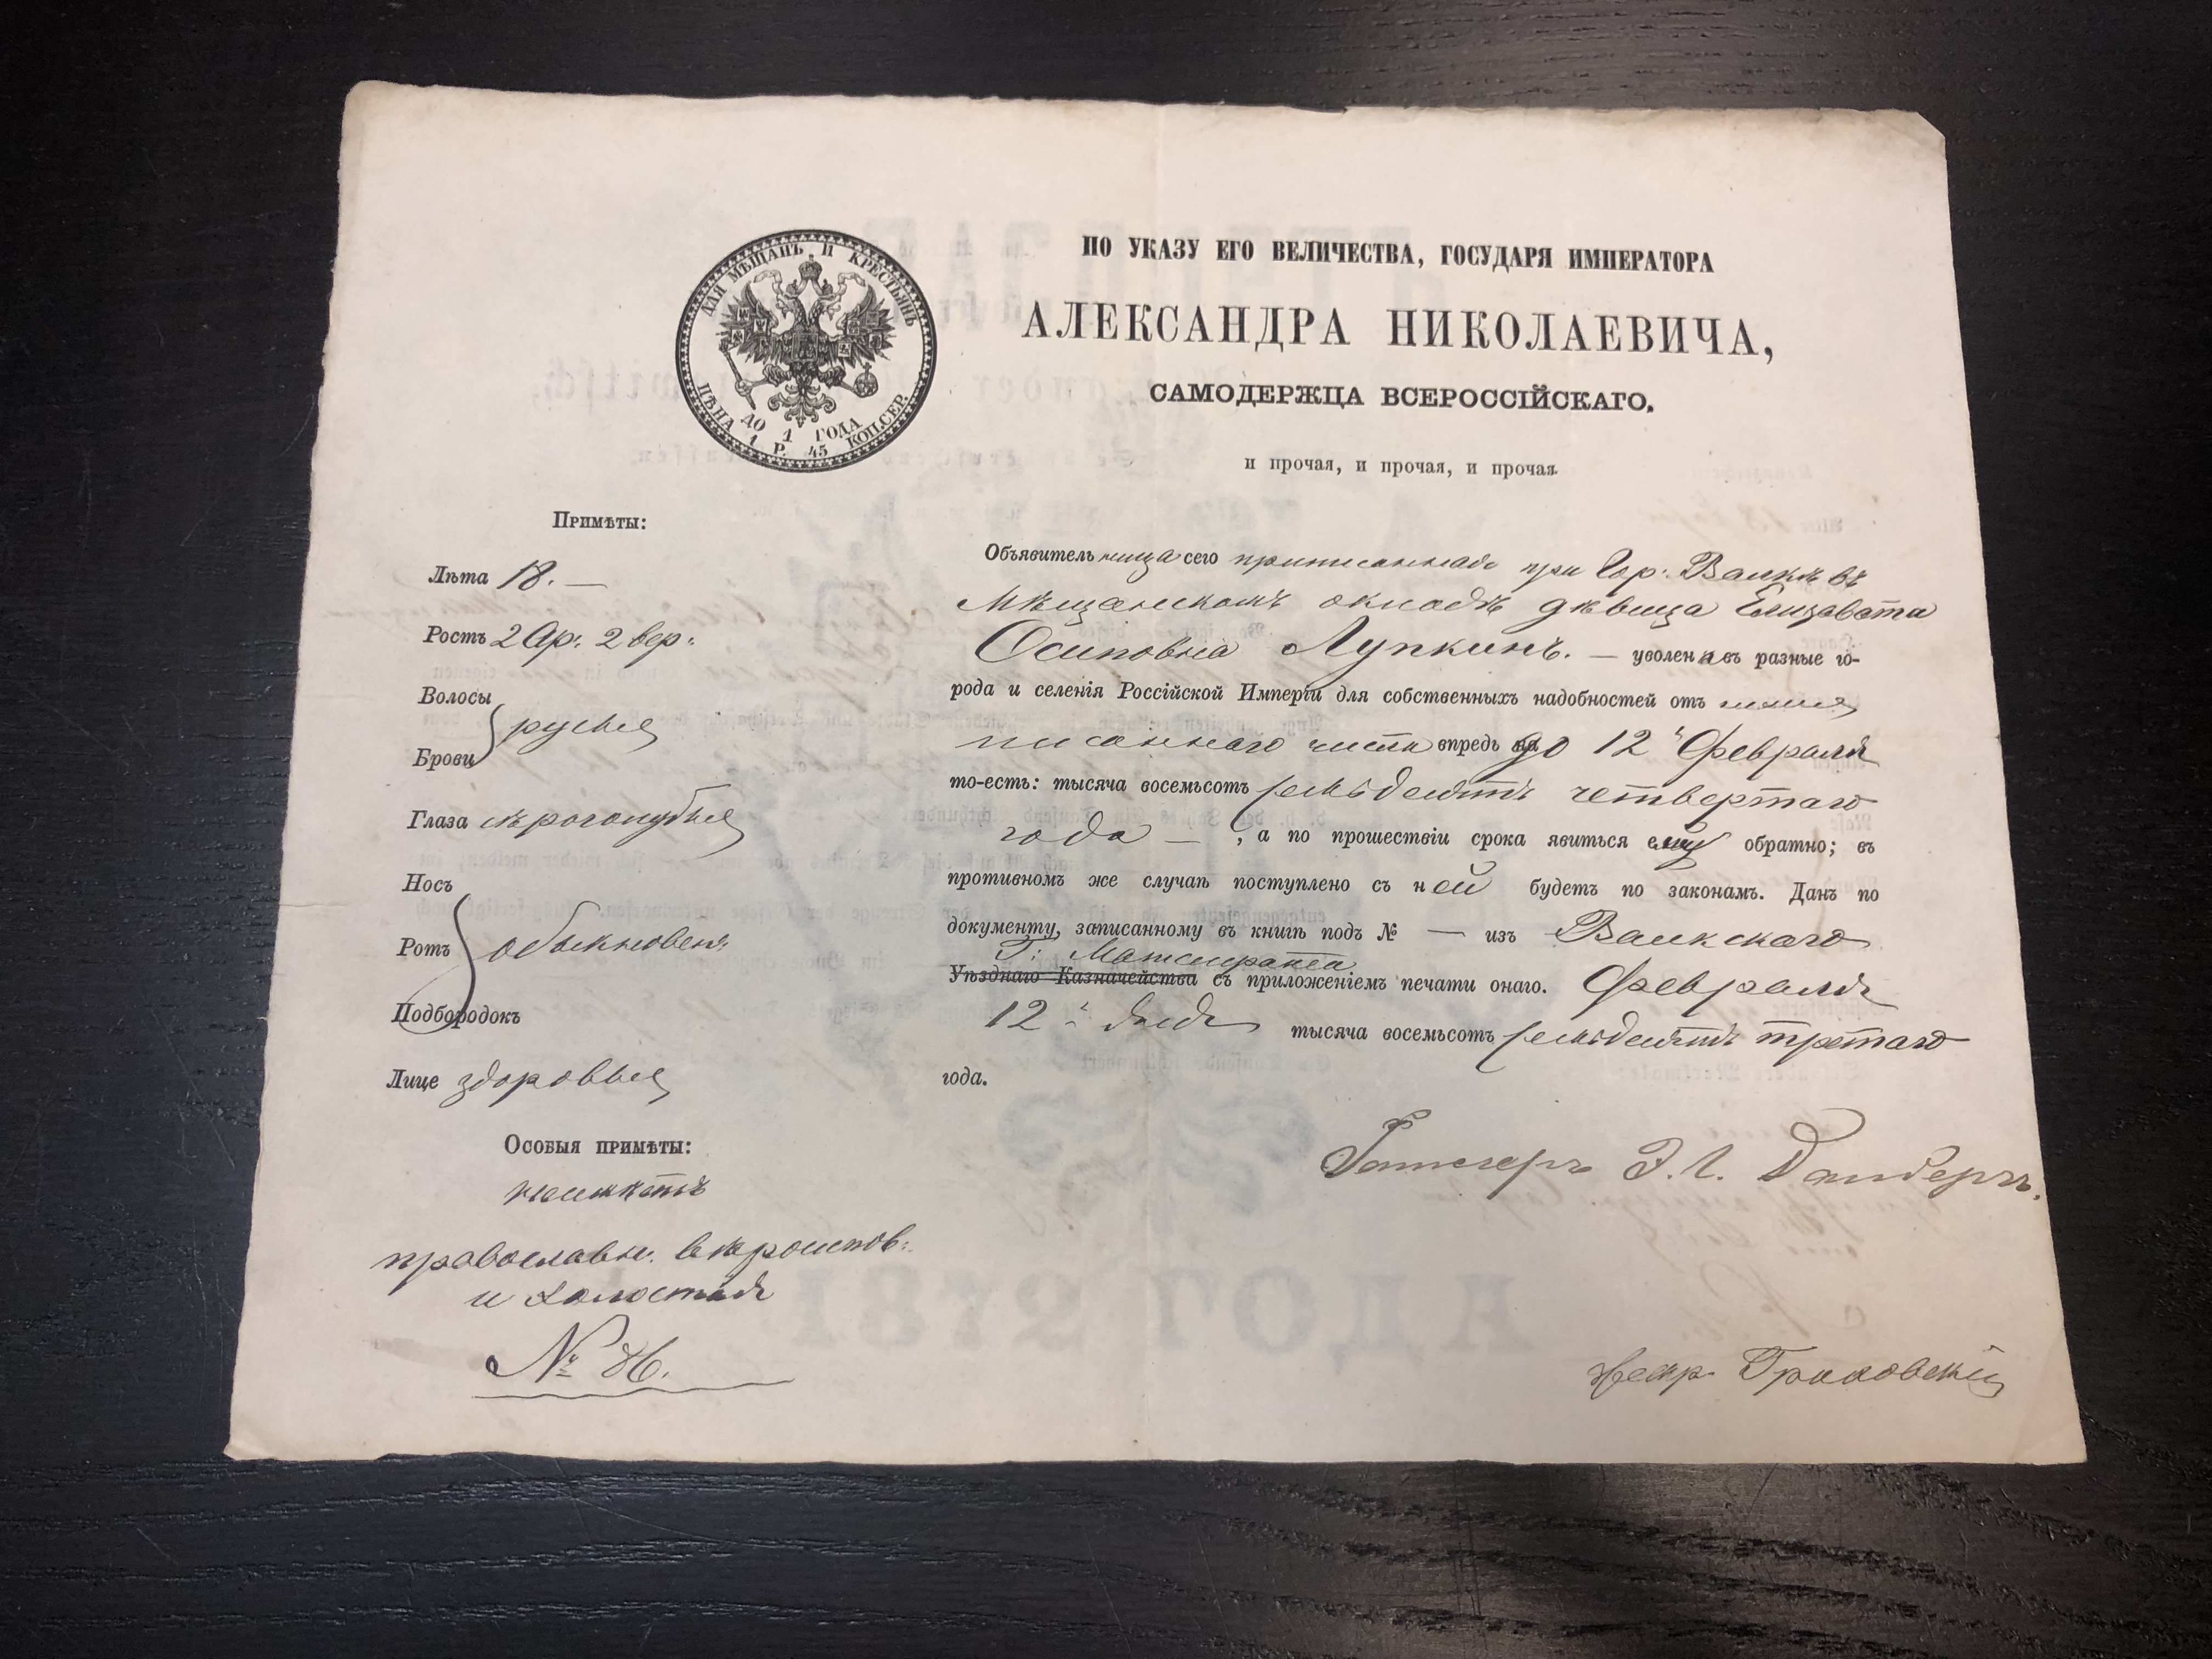 ДЛЯ МѢЩАНЪ И КРЕСТЬЯНЪ
ДО 1 ГОДА
ЦѢНА 1 Р. 45 КОП.СЕР.
ПО УКАЗУ ЕГО ВЕЛИЧЕСТВА, ГОСУДАРЯ ИМПЕРАТОРА
АЛЕКСАНДРА НИКОЛАЕВИЧА,
САМОДЕРЖЦА ВСЕРОССІЙСКАГО,
и прочая, и прочая, и прочая
Примѣты:
Лѣта 18. —
Ростъ 2 Ар: 2 вер:
Волосы
Брови русые
Глаза сѣроголубые
Носъ
Ротъ обыкновен:
Подбородокъ
Лице здоровые
Особыя примѣты:
неимѣетъ
православн. вѣроисков:
и холостая
№ 86.
Объявительница сего приписанная при Гор: Валкѣ въ
Мѣщанскомъ окладѣ дѣвица Елизавета
Осиповна Лупкинъ. — уволена въ разные го-
рода и селенія Россійской Имперіи для собственныхъ надобностей отъ ниже
писаннаго числа впредь до 12 Февраля
то-есть: тысяча восемьсотъ семьдесятъ четвертаго
года — , а по прошествіи срока явиться ей обратно; въ
противномъ же случаѣ поступлено съ ней будетъ по законамъ. Данъ по
документу, записанному въ книгѣ подъ № — изъ Валкскаго
Г: Магистрата
Уѣзднаго Казначейства съ приложеніемъ печати онаго. Февраля
12 дня тысяча восемьсотъ семьдесятъ третаго
года.
Ратсгеръ Э. Г. Даудеръ.
Секр. Граховскій
1872 ГОДА